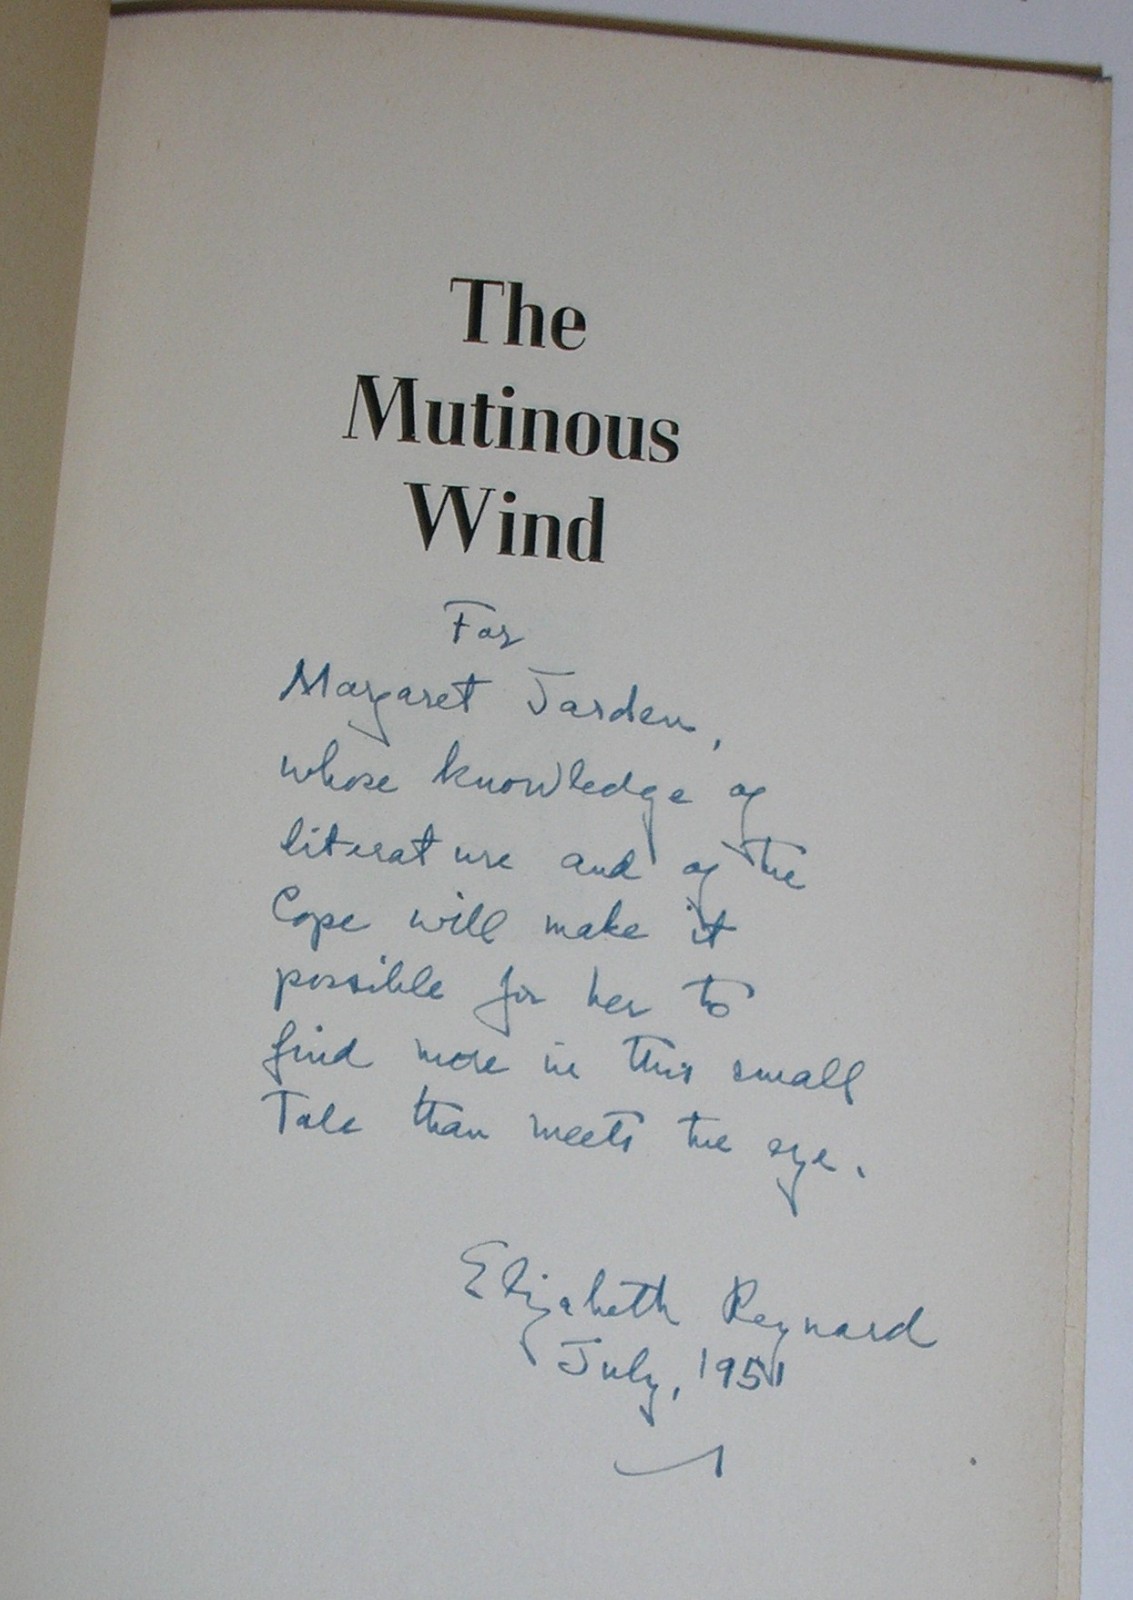 The
Mutinous
Wind
For
Margaret Jarden,
whose knowledge of
literature and of the
Cape will make it
possible for her to
find more in this small
Tale than meets the eye.
Elizabeth Reynard
July, 1951